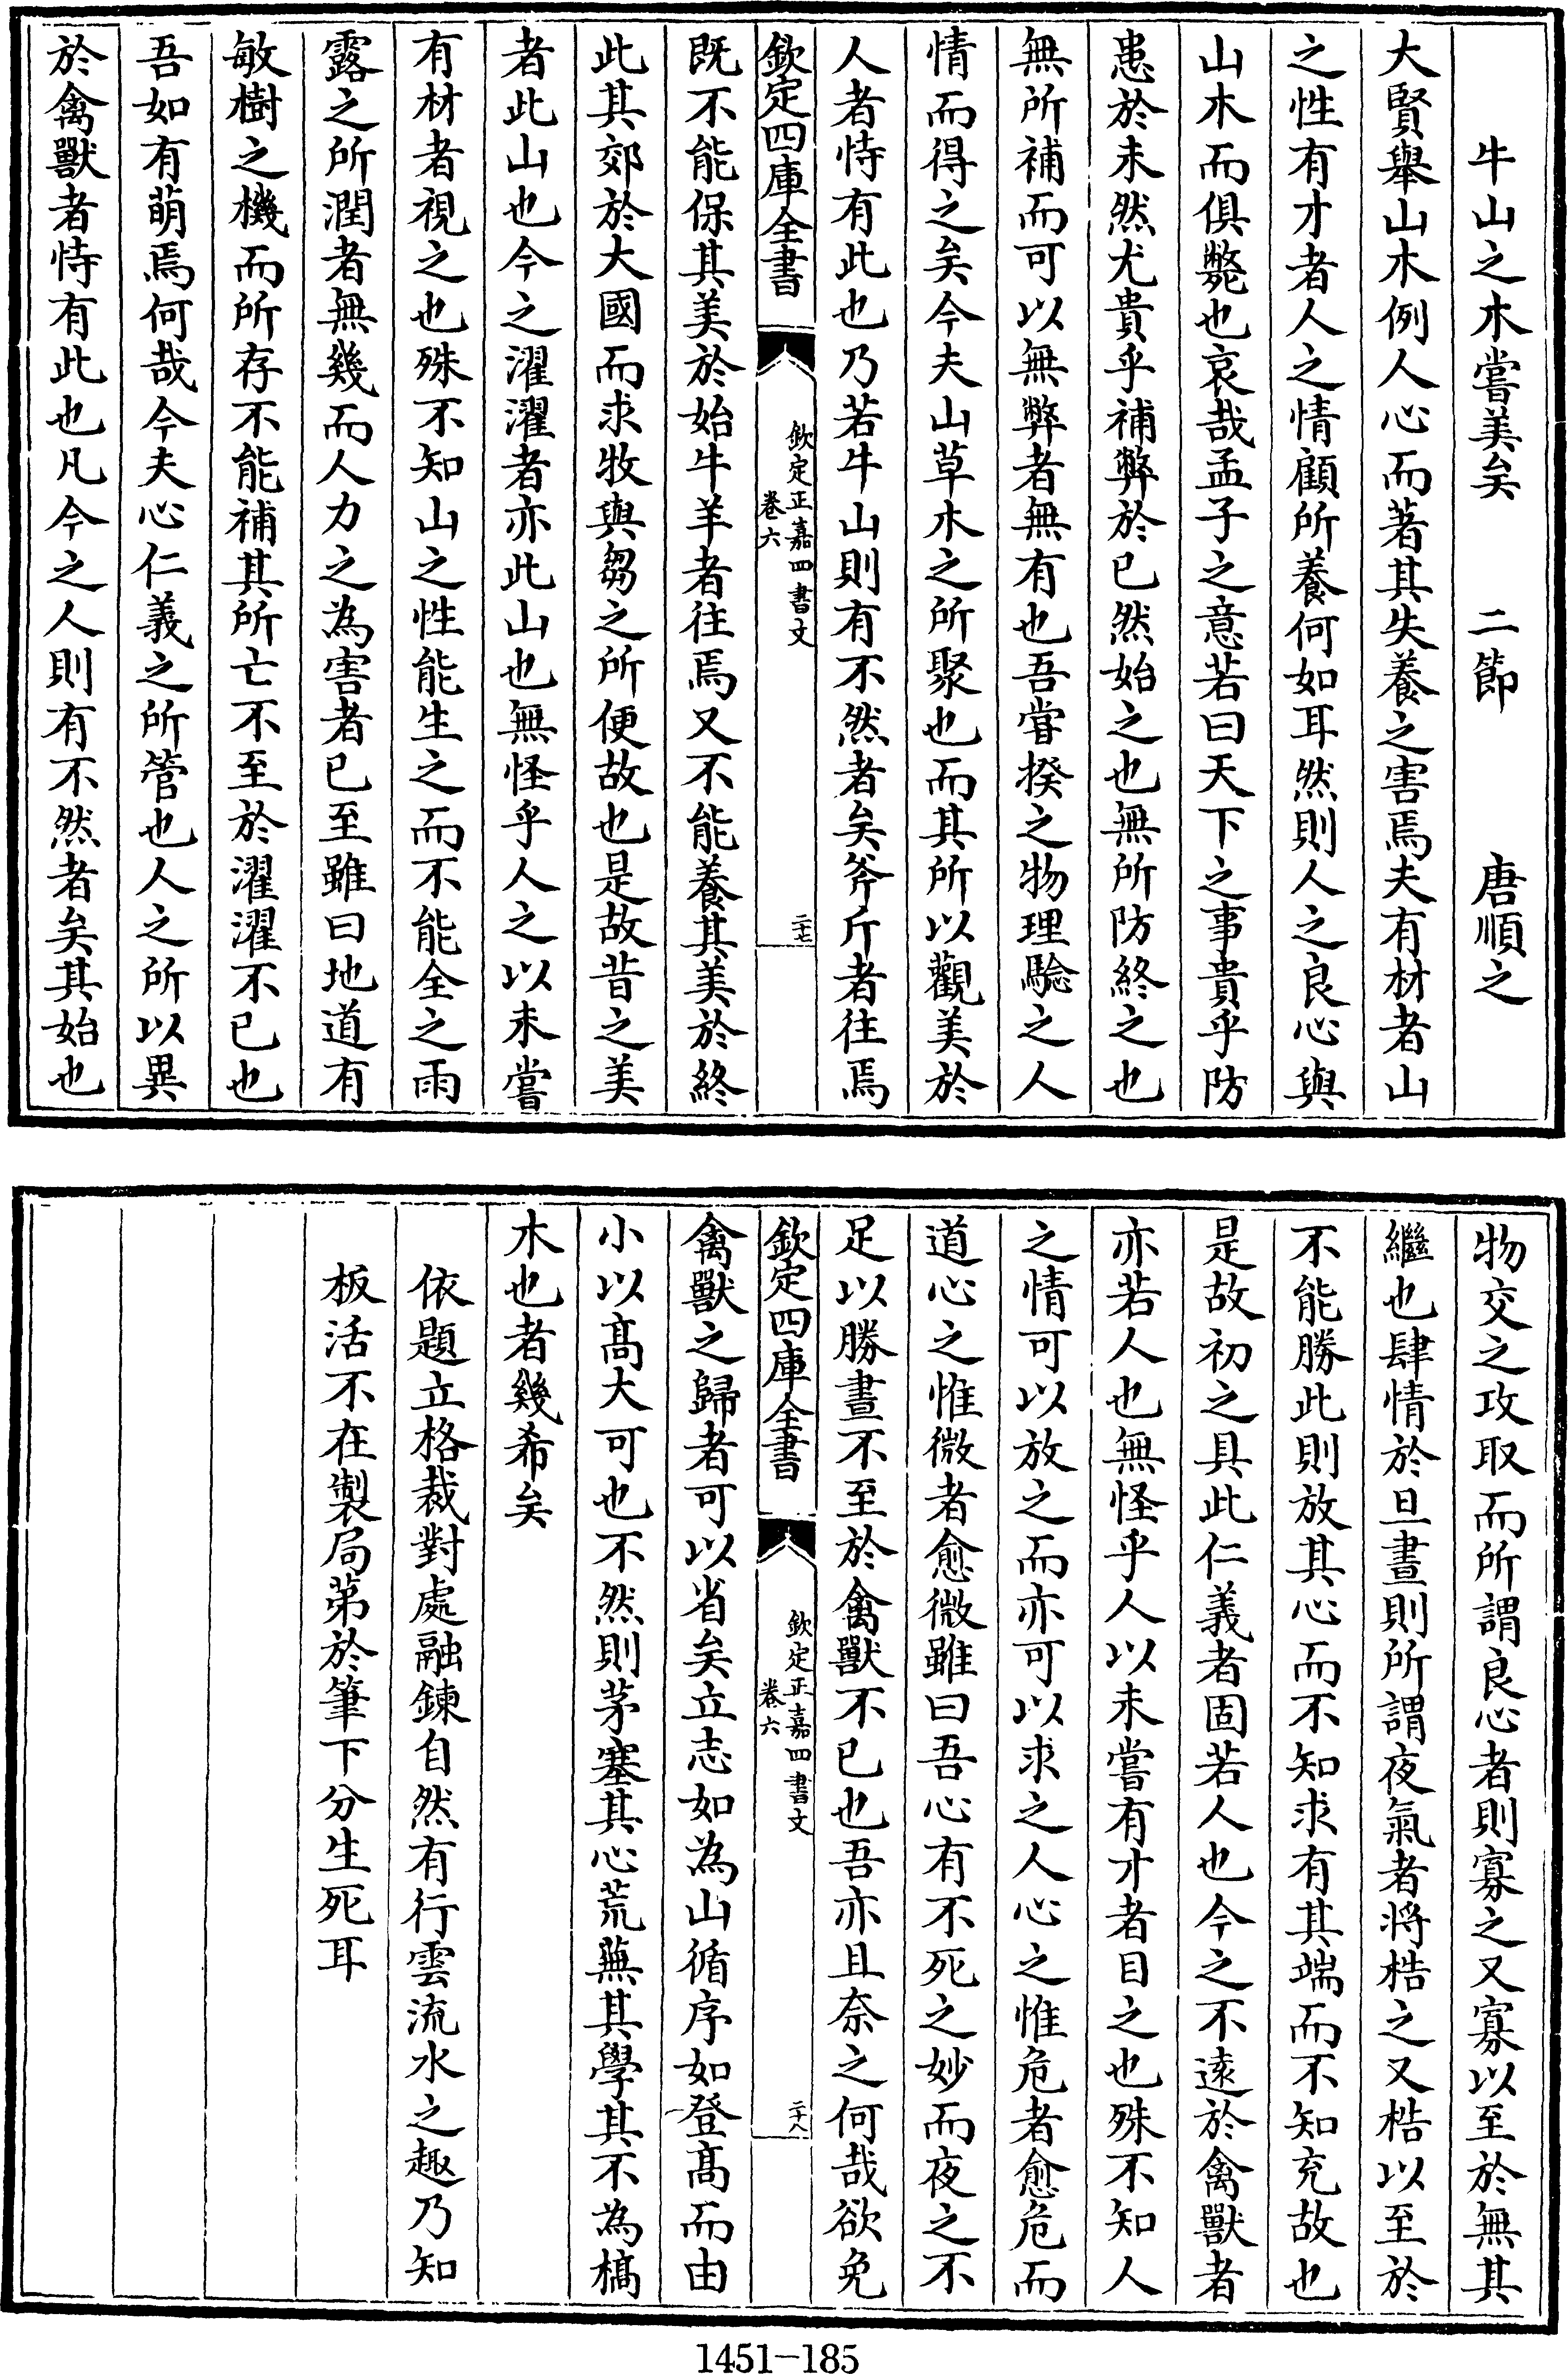 牛山之木嘗美矣　二節　唐順之
大賢舉山木例人心而著其失養之害焉夫有材者山
之性有才者人之情顧所養何如耳然則人之良心與
山木而俱斃也哀哉孟子之意若曰天下之事貴乎防
患於未然尤貴乎補弊於已然始之也無所防終之也
無所補而可以無弊者無有也吾嘗揆之物理驗之人
情而得之矣今夫山草木之所聚也而其所以觀美於
人者恃有此也乃若牛山則有不然者矣斧斤者往焉
欽定四庫全書
欽定正嘉四書文
卷六
二十七
既不能保其美於始牛羊者往焉又不能養其美於終
此其郊於大國而求牧與芻之所便故也是故昔之美
者此山也今之濯濯者亦此山也無怪乎人之以未嘗
有材者視之也殊不知山之性能生之而不能全之雨
露之所潤者無幾而人力之為害者已至雖曰地道有
敏樹之機而所存不能補其所亡不至於濯濯不已也
吾如有萌焉何哉今夫心仁義之所管也人之所以異
於禽獸者恃有此也凡今之人則有不然者矣其始也
物交之攻取而所謂良心者則寡之又寡以至於無其
繼也肆情於旦晝則所謂夜氣者將梏之又梏以至於
不能勝此則放其心而不知求有其端而不知充故也
是故初之具此仁義者固若人也今之不遠於禽獸者
亦若人也無怪乎人以未嘗有才者目之也殊不知人
之情可以放之而亦可以求之人心之惟危者愈危而
道心之惟微者愈微雖曰吾心有不死之妙而夜之不
足以勝晝不至於禽獸不已也吾亦且奈之何哉欲免
欽定四庫全書
欽定正嘉四書文
卷六
二十八
禽獸之歸者可以省矣立志如為山循序如登髙而由
小以髙大可也不然則茅塞其心荒蕪其學其不為槁
木也者幾希矣
依題立格裁對處融鍊自然有行雲流水之趣乃知
板活不在製局第於筆下分生死耳
1451-185